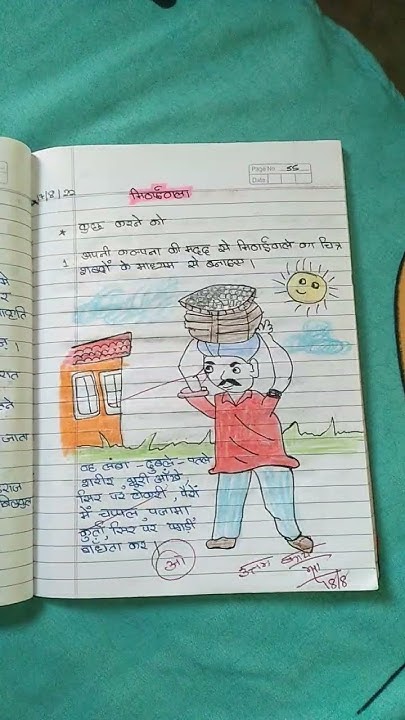 17/8/22
मिठाईवाला
Page No. 55
Date
* कुछ करने को
1 अपनी कल्पना की मदद से मिठाईवाले का चित्र
शब्दों के माध्यम से बनाइए।
वह लंबा - दुबला - पतले
शरीर, भूरी आँखे,
सिर पर टोकरी, पैरों
में चप्पल, पजामा
कुर्ता, सिर पर पगड़ी
बाँधता कर।
ओ
18/8